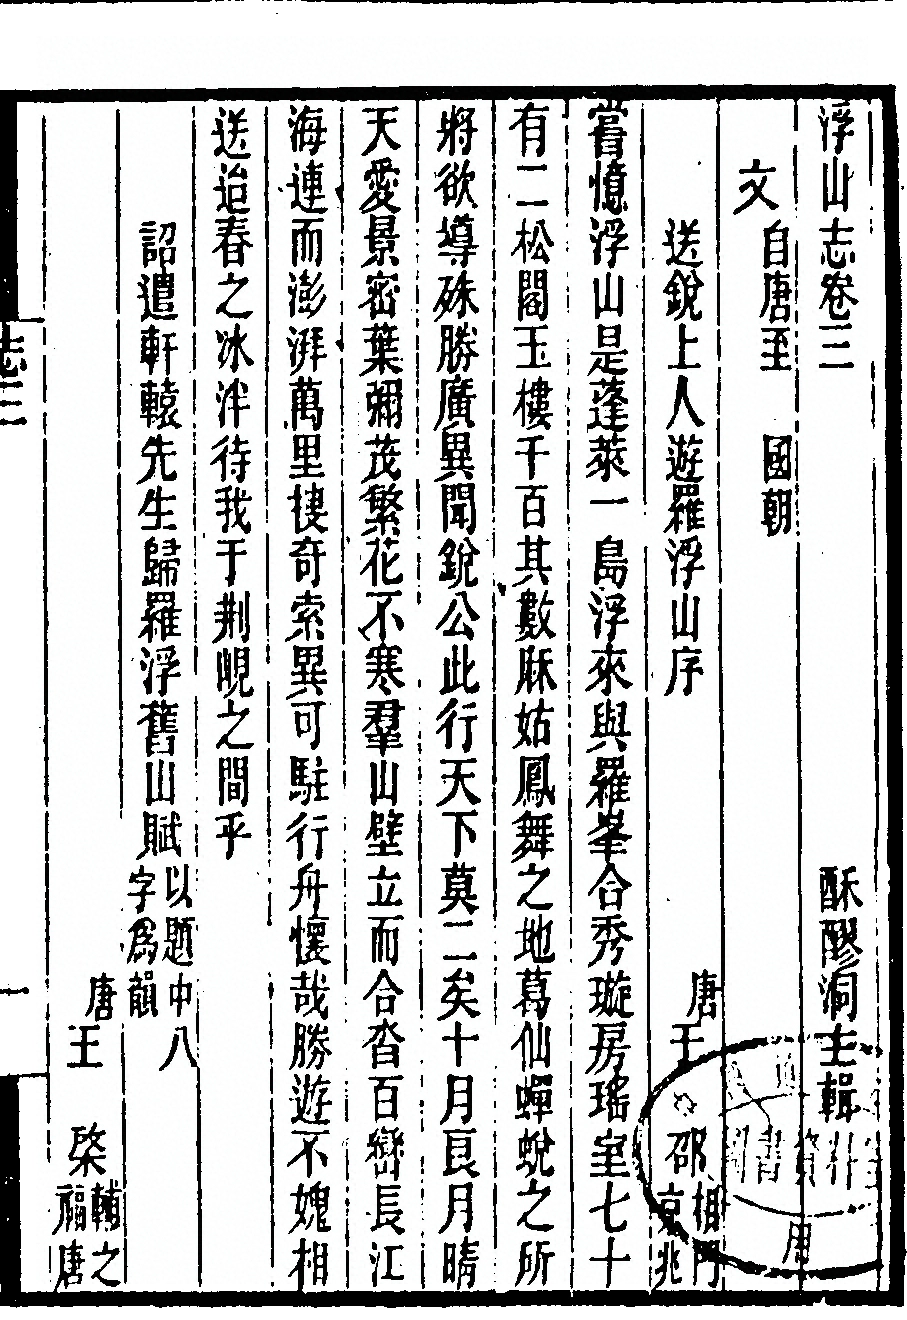 浮山志卷三　酥醪洞主輯
文　自唐至　國朝
送銳上人遊羅浮山序
唐　于邵　相門　京兆
嘗憶浮山是蓬萊一島浮來與羅峯合秀璇房瑤室七十
有二松閣玉樓千百其數麻姑鳳舞之地葛仙蟬蛻之所
將欲導殊勝廣異聞銳公此行天下莫二矣十月良月晴
天愛景密葉彌茂繁花不寒羣山壁立而合沓百巒長江
海連而澎湃萬里捿奇索異可駐行舟懷哉勝遊不媿相
送迨春之冰泮待我于荆峴之間乎
詔遣軒轅先生歸羅浮舊山賦　以題中八字爲韻
唐　王棨　輔之　福唐
志三
一